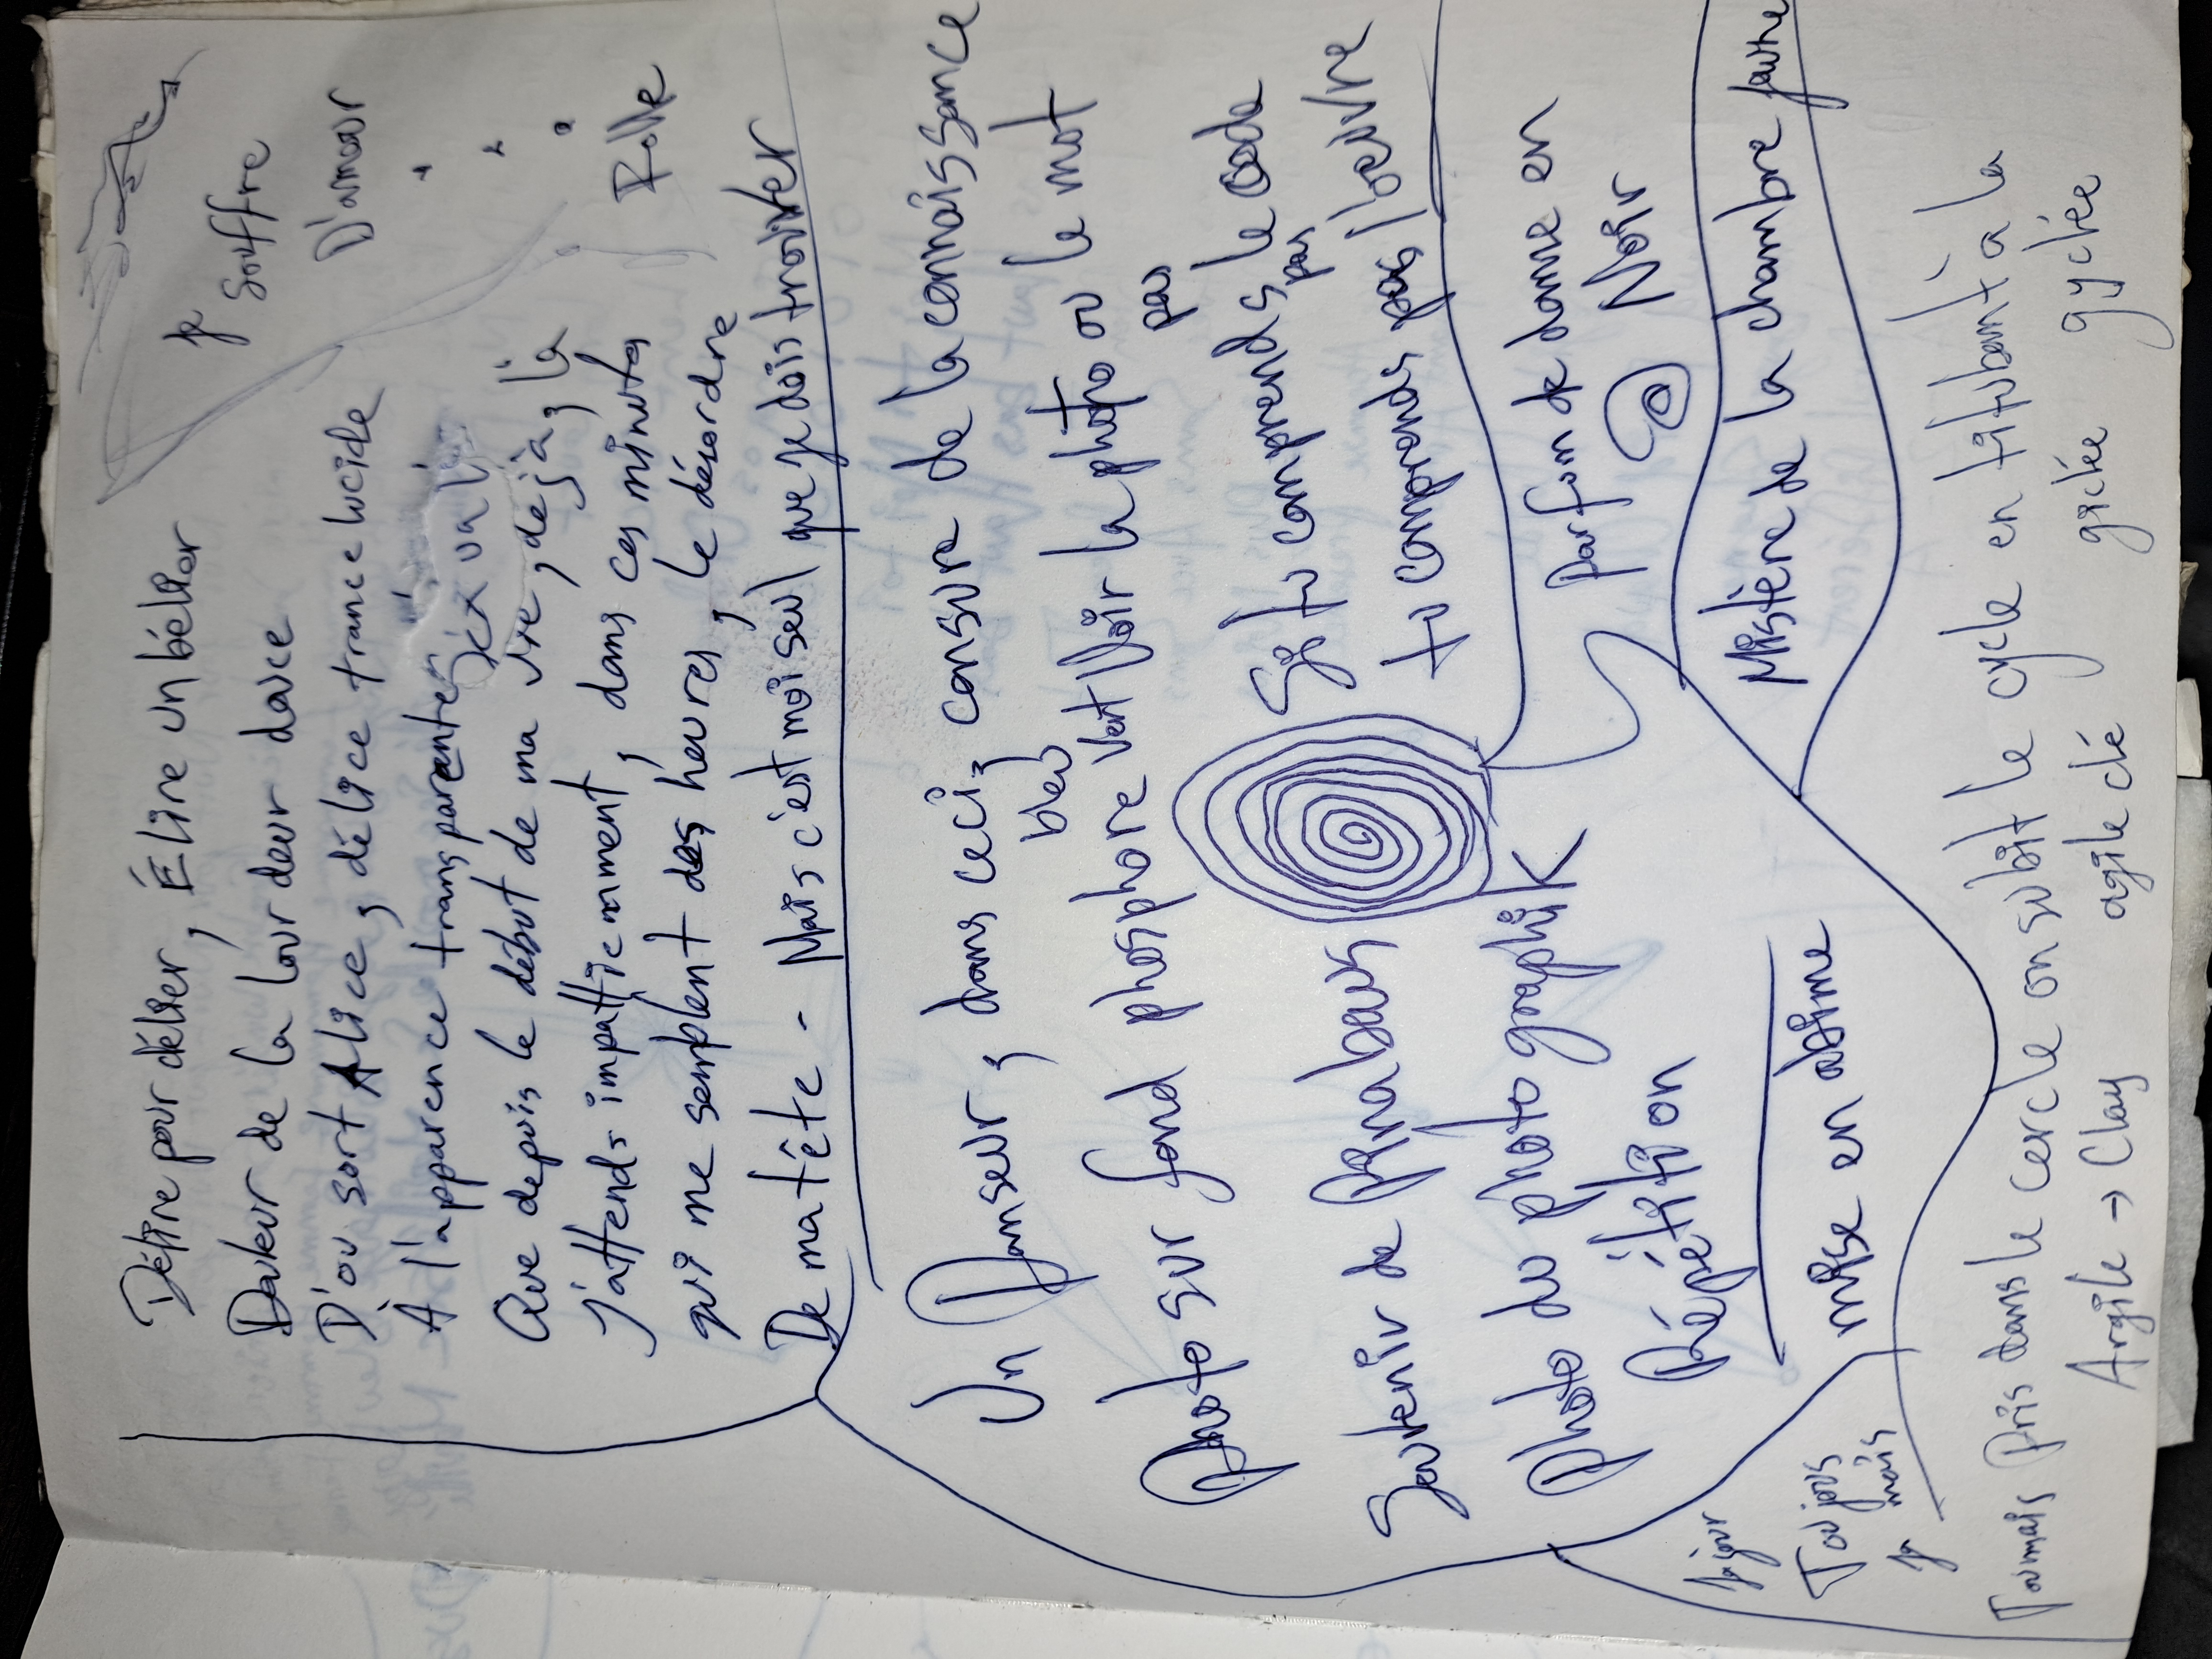 Délire pour délier, Élire un bélier
Douleur de la lourdeur douce
D'où sort Alice, délice trance lucide
À l'apparence transparente
Que depuis le début de ma vie, déjà, là
J'attends impatiemment, dans ces minutes
qui me semblent des heures, le désordre
De ma tête - Mais c'est moi seul que je dois trouver
je
souffre
D'amour
Folle
Un Danseur, dans ceci, censure de la connaissance
bleu
Photo sur fond phosphore vert Voir la photo ou le mot
Souvenir de Rimbaud Si tu comprends pas le code
tu comprends pas l'oeuvre
Photo du photographik
Répétition
parfum de damne en
Noir
mise en abîme
Mistère de la chambre jaune
Toujours
je mais
Tournais Pris dans le cercle on subit le cycle en titubant à la
Argile → Clay agile clé giclée gyclée